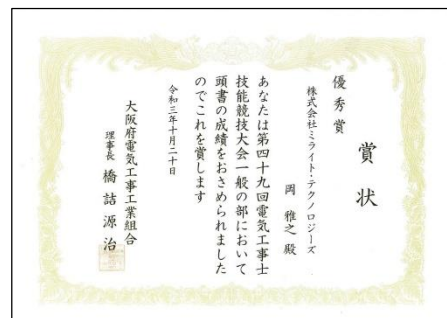 賞状
優秀賞
株式会社ミライト・テクノロジーズ
岡 雅之 殿
あなたは第四十九回電気工事士
技能競技大会一般の部において
頭書の成績をおさめられました
のでこれを賞します
令和三年十月二十日
大阪府電気工事工業組合
理事長 橋詰源治